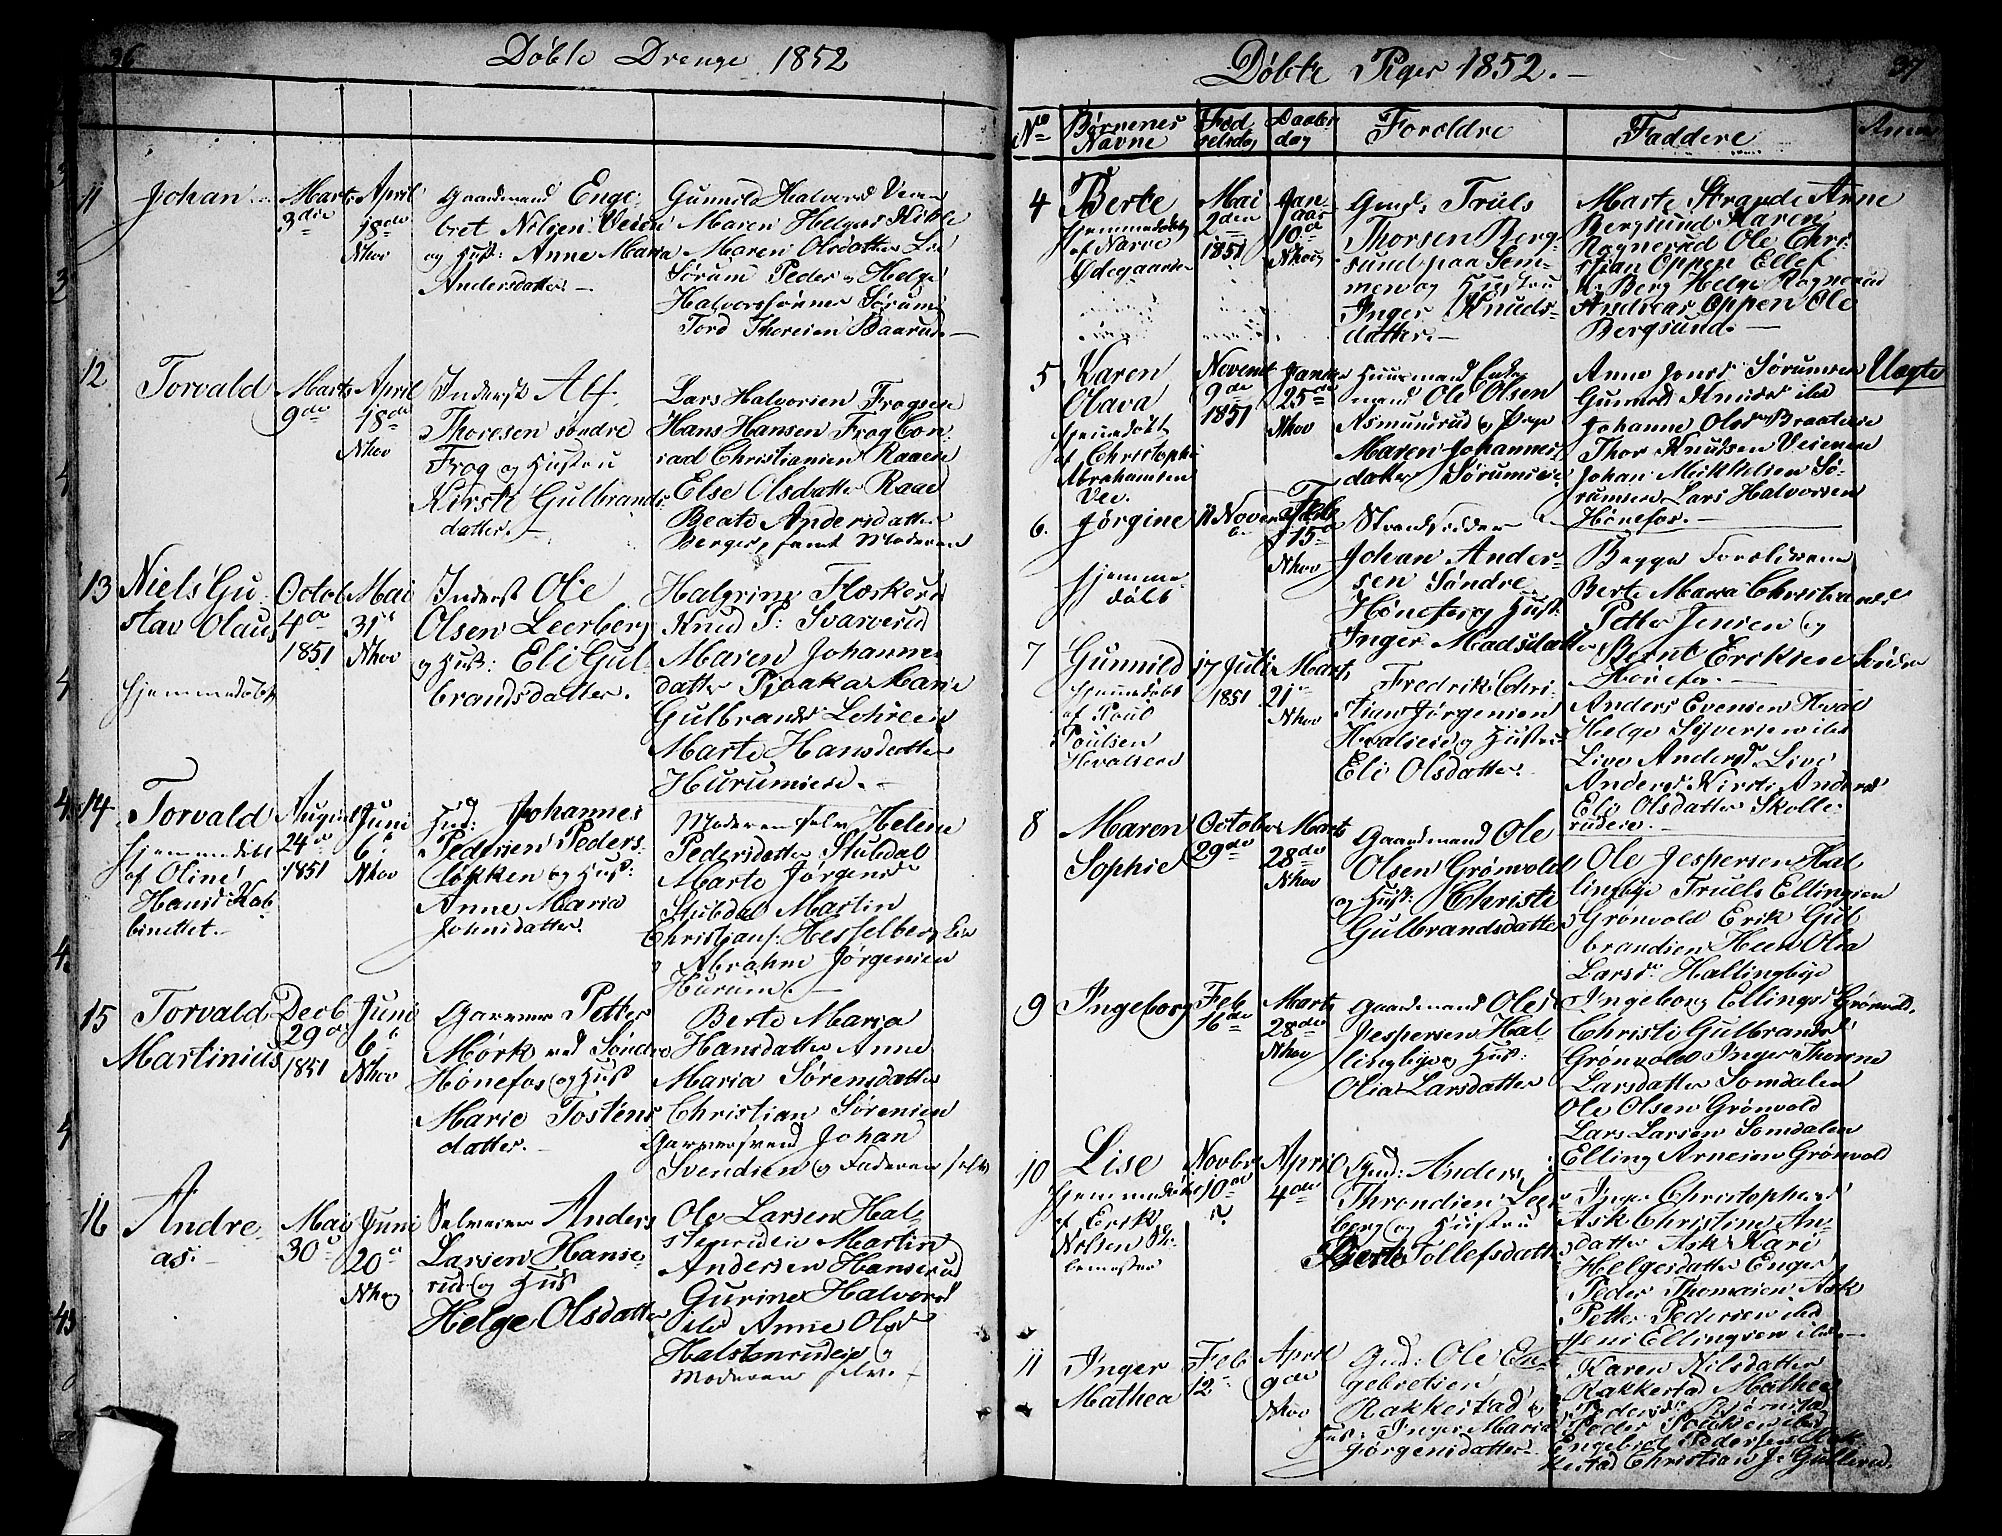 36
Døbte Drenge 1852
11
Johan
Marts
3die
April
18de
Nhov
Gaardmand Enge-
bret Nilsen Veien
og Hust: Anne Maria
Andersdatter.
Gunnild Halvorsd Veien
Maren Helgesd Kikle
Maren Olsdatter Lie
Sørum Peder og Helge
Halvorssønner Sørum
Tord Thoresen Baarud.
12
Torvald
Marts
9de
April
18de
Nhov
Inderst Alf
Thoresen søndre
Frog og Hustru
Kirsti Gulbrands-
datter.
Lars Halvorsen Frogseie
Hans Hansen Frog Con-
rad Christiansen Raaen
Else Olsdatter Raae
Beate Andersdatter
Berger, samt Moderen
13
Niels Gu-
stav Olaus
Hjemmedøbt
Octob
4de
1851
Mai
31te
Nhov
Inderst Ole
Olsen Leerberg
og Hust: Eli Gul-
brandsdatter.
Halgrim Flaskerud
Knud P: Svarverud
Maren Johannes-
datter Pjaaka Marie
Gulbrandsd Lohreeie
Marte Hansdatter
Hurumeie.
14
Torvald
Hjemmedøbt
af Oline
Hansd Kab-
binettet.
August
24de
1851
Juni
6te
Nhov
Hsd: Johannes
Pedersen Peders-
løkken og Hust:
Anne Maria
Johnsdatter.
Moderen selv Helene
Pedersdatter Stubdal
Marte Jørgensd
Stubdal Martin
Christians: Hesselberg Eie
og Abrahm Jørgensen
Hurum.
15
Torvald
Martinius
Decb
29de
1851
Juni
6te
Nhov
Garver Petter
Mørk ved Søndre
Hønefos og Hust
Marie Tostens-
datter.
Berte Maria
Hansdatter Anne
Maria Sørensdatter
Christian Sørensen
Garversvend Johan
Svendsen og Faderen selv
16
Andre-
as.
Mai
30te
Juni
20de
Nhov
Selveier Anders
Larsen Hanse-
rud og Hust
Helge Olsdatter
Ole Larsen Hal-
stenrudeie Martin
Andersen Hanserud
Gurine Halvorsd
ibd Anne Olsd
Halstenrudeie og
Moderen selv.
Døbte Piger 1852.
37
No
Børnenes
Navne
Fød-
selsdag
Daabs-
dag
Foreldre
Faddere
Anm
4
Berte
Hjemmedøbt
af Narve
Ødegaarden
Mai
2den
1851
Jan-
uar
10de
Nhov
Gmd: Truls
Thorsen Berg-
sund paa Sem-
men og Hustru
Inger Knuds-
datter.
Marte Strande Anne
Bergsund Maren
Rognerud Ole Chri-
stian Oppen Ellef
Berg Helge Rognerud
Andreas Oppen Ole
Bergsund.
5
Karen
Olava
Hjemmedøbt
af Christopher
Abrahamsen
Vei.
Novemb
9de
1851
Januar
25de
Nhov
Huusmand
Ole Olsen
Asmundrud og Pige
Maren Johannes-
datter Sørumseie
Anne Jonsd Sørumeie
Gunnild Knutsd ibd
Johanne Olsd Braateeie
Thor Knutsen Veieneie
Johan Mikkelsen Sø-
rumseie Lars Halvorsen
Hønefos.
Uægte
6.
Jørgine
Hjemme-
døbt
11 Novem
b.
Feb
15de
Nhov
Strandsidder
Johan Ander-
sen Søndre
Hønefos og Hust:
Inger Madsdatter
Begge Foreldrene
Berte Maria Christiansd
Petter Jensen og
Bernt Eriksen Søndre
Hønefos.
7
Gunnild
Hjemmedøbt
af Poul
Poulsen
Hvalseie
17 Juli
1851
Marts
21de
Nhov
Fredrik Chri-
stian Jørgensen
Hvalseie og Hustru
Eli Olsdatter.
Anders Evensen Hval
Helge Siversen ibd
Live Andersd Live
Andersd Kirsti Andersd
Eli Olsdatter Skolle-
rudeie.
8
Maren
Sophie
October
29de
Marts
28de
Nhov
Gaardmand Ole
Olsen Grønvold
og Hust: Christi
Gulbrandsdatter
Ole Jespersen Hal-
lingbye Truls Ellingsen
Grønvold Erik Gul-
brandsen Heen Olea
Larsd Hallingbye
9
Ingeborg
Feb
16de
Marts
28de
Nhov
Gaardmand Ole
Jespersen Hal-
lingbye og Hust:
Olia Larsdatter
Ingeborg Ellingsd Grønvold,
Christi Gulbrandsd
Grønvold Inger Thorine
Larsdatter Somdalen
Ole Olsen Grønvold
Lars Larsen Somdalen
Elling Arnesen Grønvold
10
Lise
Hjemmedøbt
af Erik
Nilsen
Novbr
10de
April
4de
Gmd: Anders
Throndsen Leer-
berg og Hustru
Berte Tollefsdatter
Inger Christophersd
Ask Christine An-
dsdatter Ask Kari
Helgesdatter Enger
Peder Thomesen Ask
Petter Pedersen ibd
Jens Ellingsen ibd.
11
Inger
Mathea
Feb
12te
April
9de
Nhov
Gmd: Ole En-
gebretsen
Rakkestad og
Hust: Inger Maria
Jørgensdatter.
Karen Nilsdatter
Rakkestad Mathea
Pedersd: Bjørnstad
Peder Poulsen ibd
Engebret Pedersen Rak-
kestad Christian J. Gullerud.